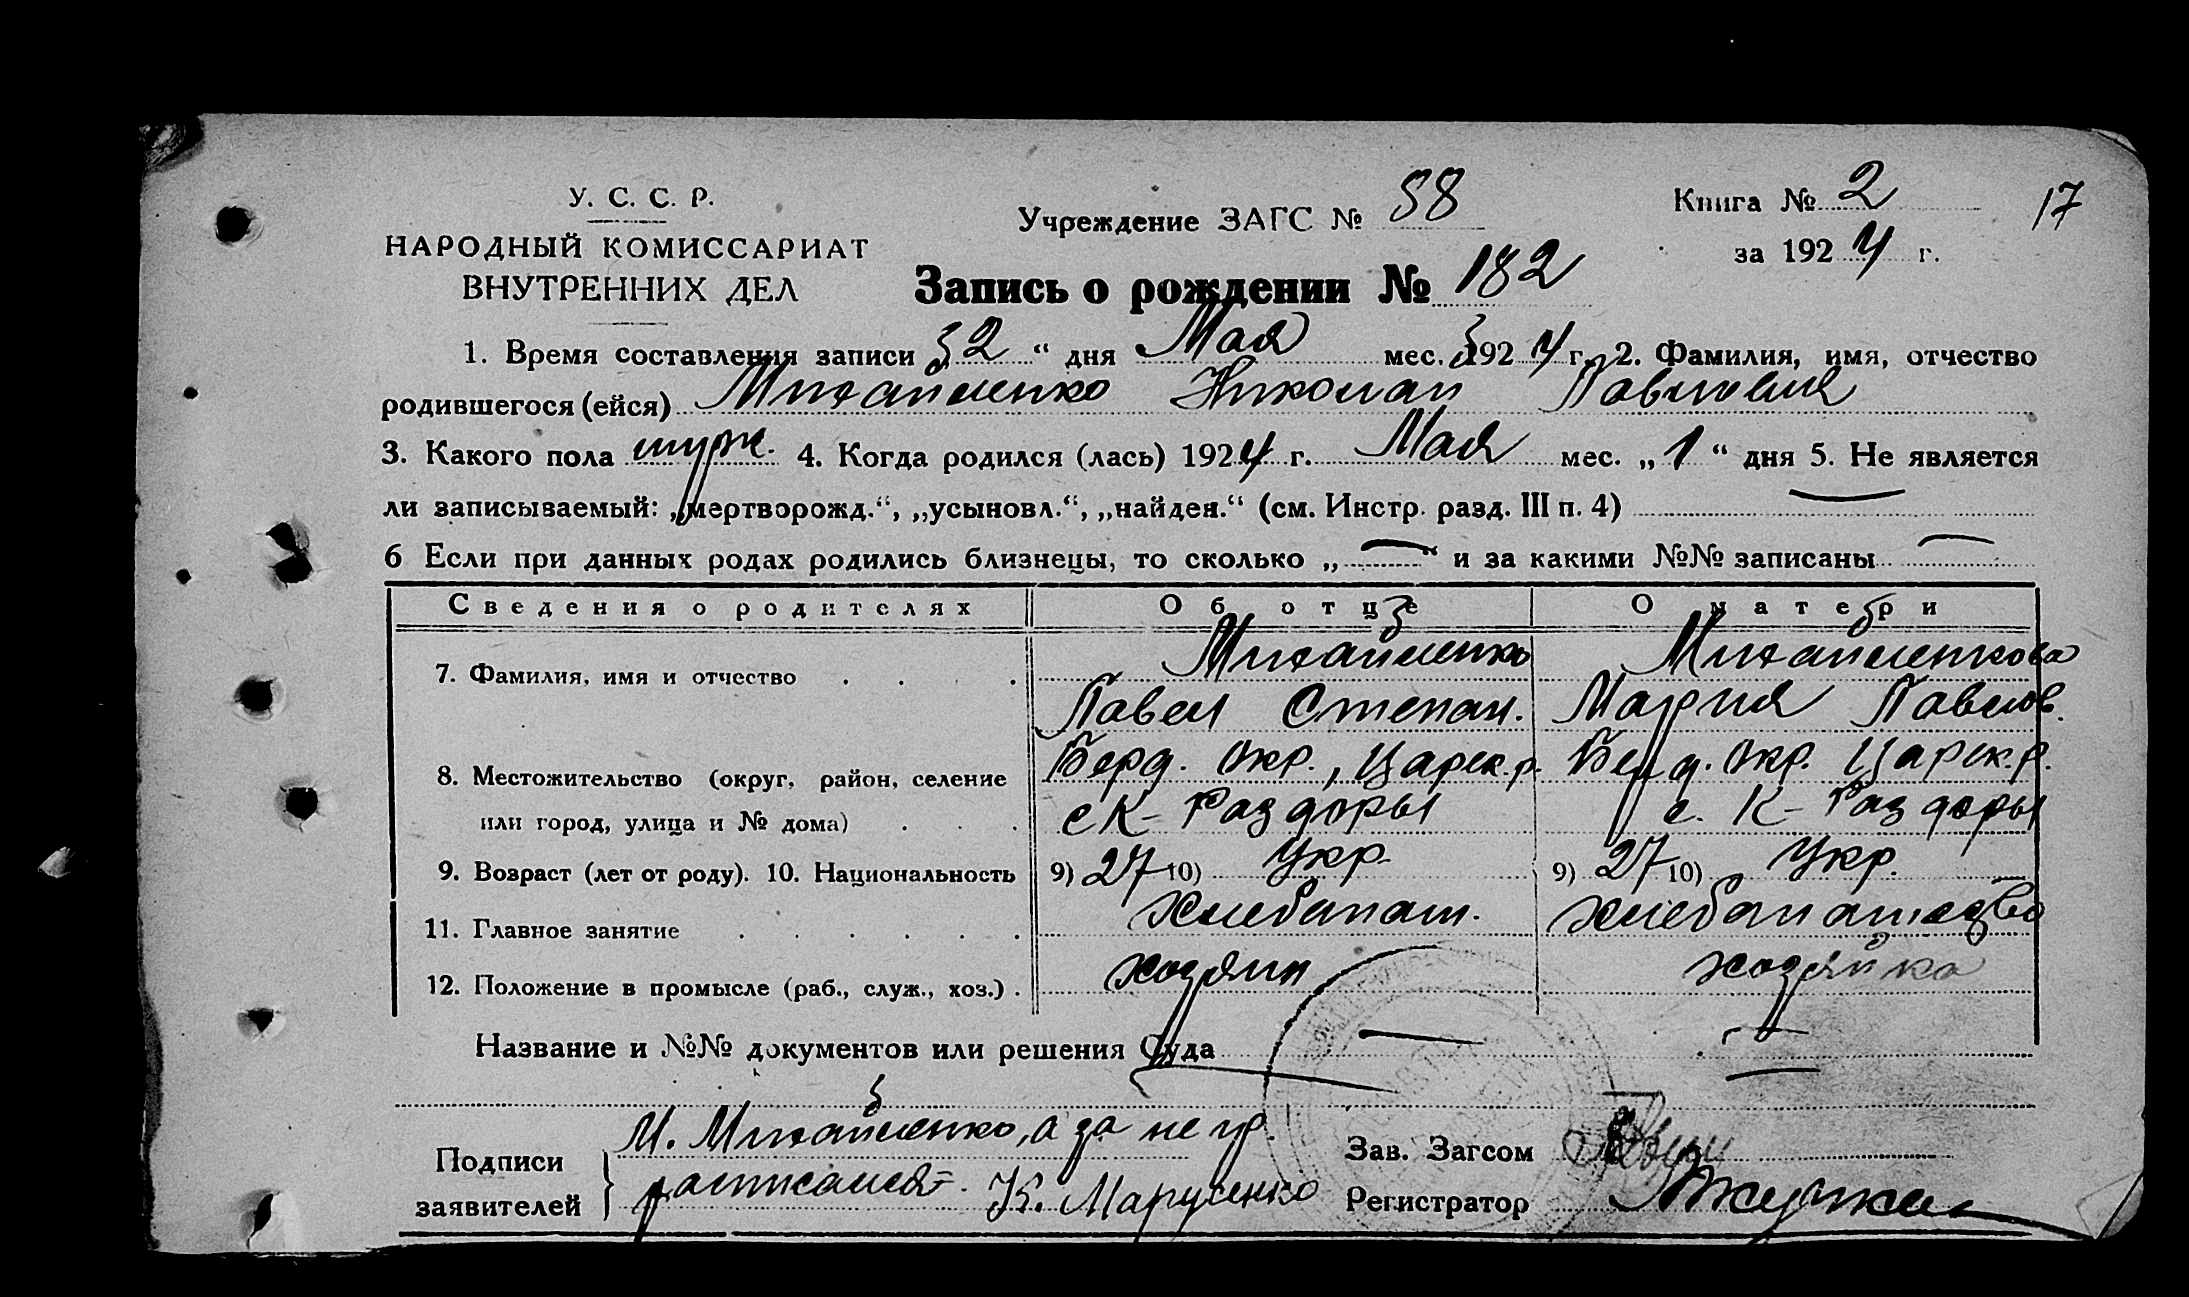 У. С. С. Р.
НАРОДНЫЙ КОМИССАРИАТ
ВНУТРЕННИХ ДЕЛ
Учреждение ЗАГС № 58
Книга № 2
17
за 1924 г.
Запись о рождении № 182
1. Время составления записи „2“ дня Мая мес. 1924 г. 2. Фамилия, имя, отчество
родившегося (ейся) Михайленко Николай Павлович
3. Какого пола муж. 4. Когда родился (лась) 1924 г. Мая мес. „1“ дня 5. Не является
ли записываемый: „мертворожд.“, „усыновл.“, „найден.“ (см. Инстр. разд. III п. 4)
6 Если при данных родах родились близнецы, то сколько „—“ и за какими №№ записаны —
Сведения о родителях Об отце О матери
7. Фамилия, имя и отчество Михайленко Михайленкова
Павел Степан. Мария Павлов.
8. Местожительство (округ, район, селение Берд. Окр., Царек. р. Берд. Окр. Царек. р.
или город, улица и № дома) с К-Раздоры с. К-Раздоры
9. Возраст (лет от роду). 10. Национальность 9) 27 10) Укр. 9) 27 10) Укр.
11. Главное занятие Хлебопаш. хлебопашество
12. Положение в промысле (раб., служ., хоз.) хозяин хозяйка
Название и №№ документов или решения Суда — —
Подписи заявителей М. Михайленко, а за негр.
расписался К. Марусенко
Зав. Загсом
Регистратор